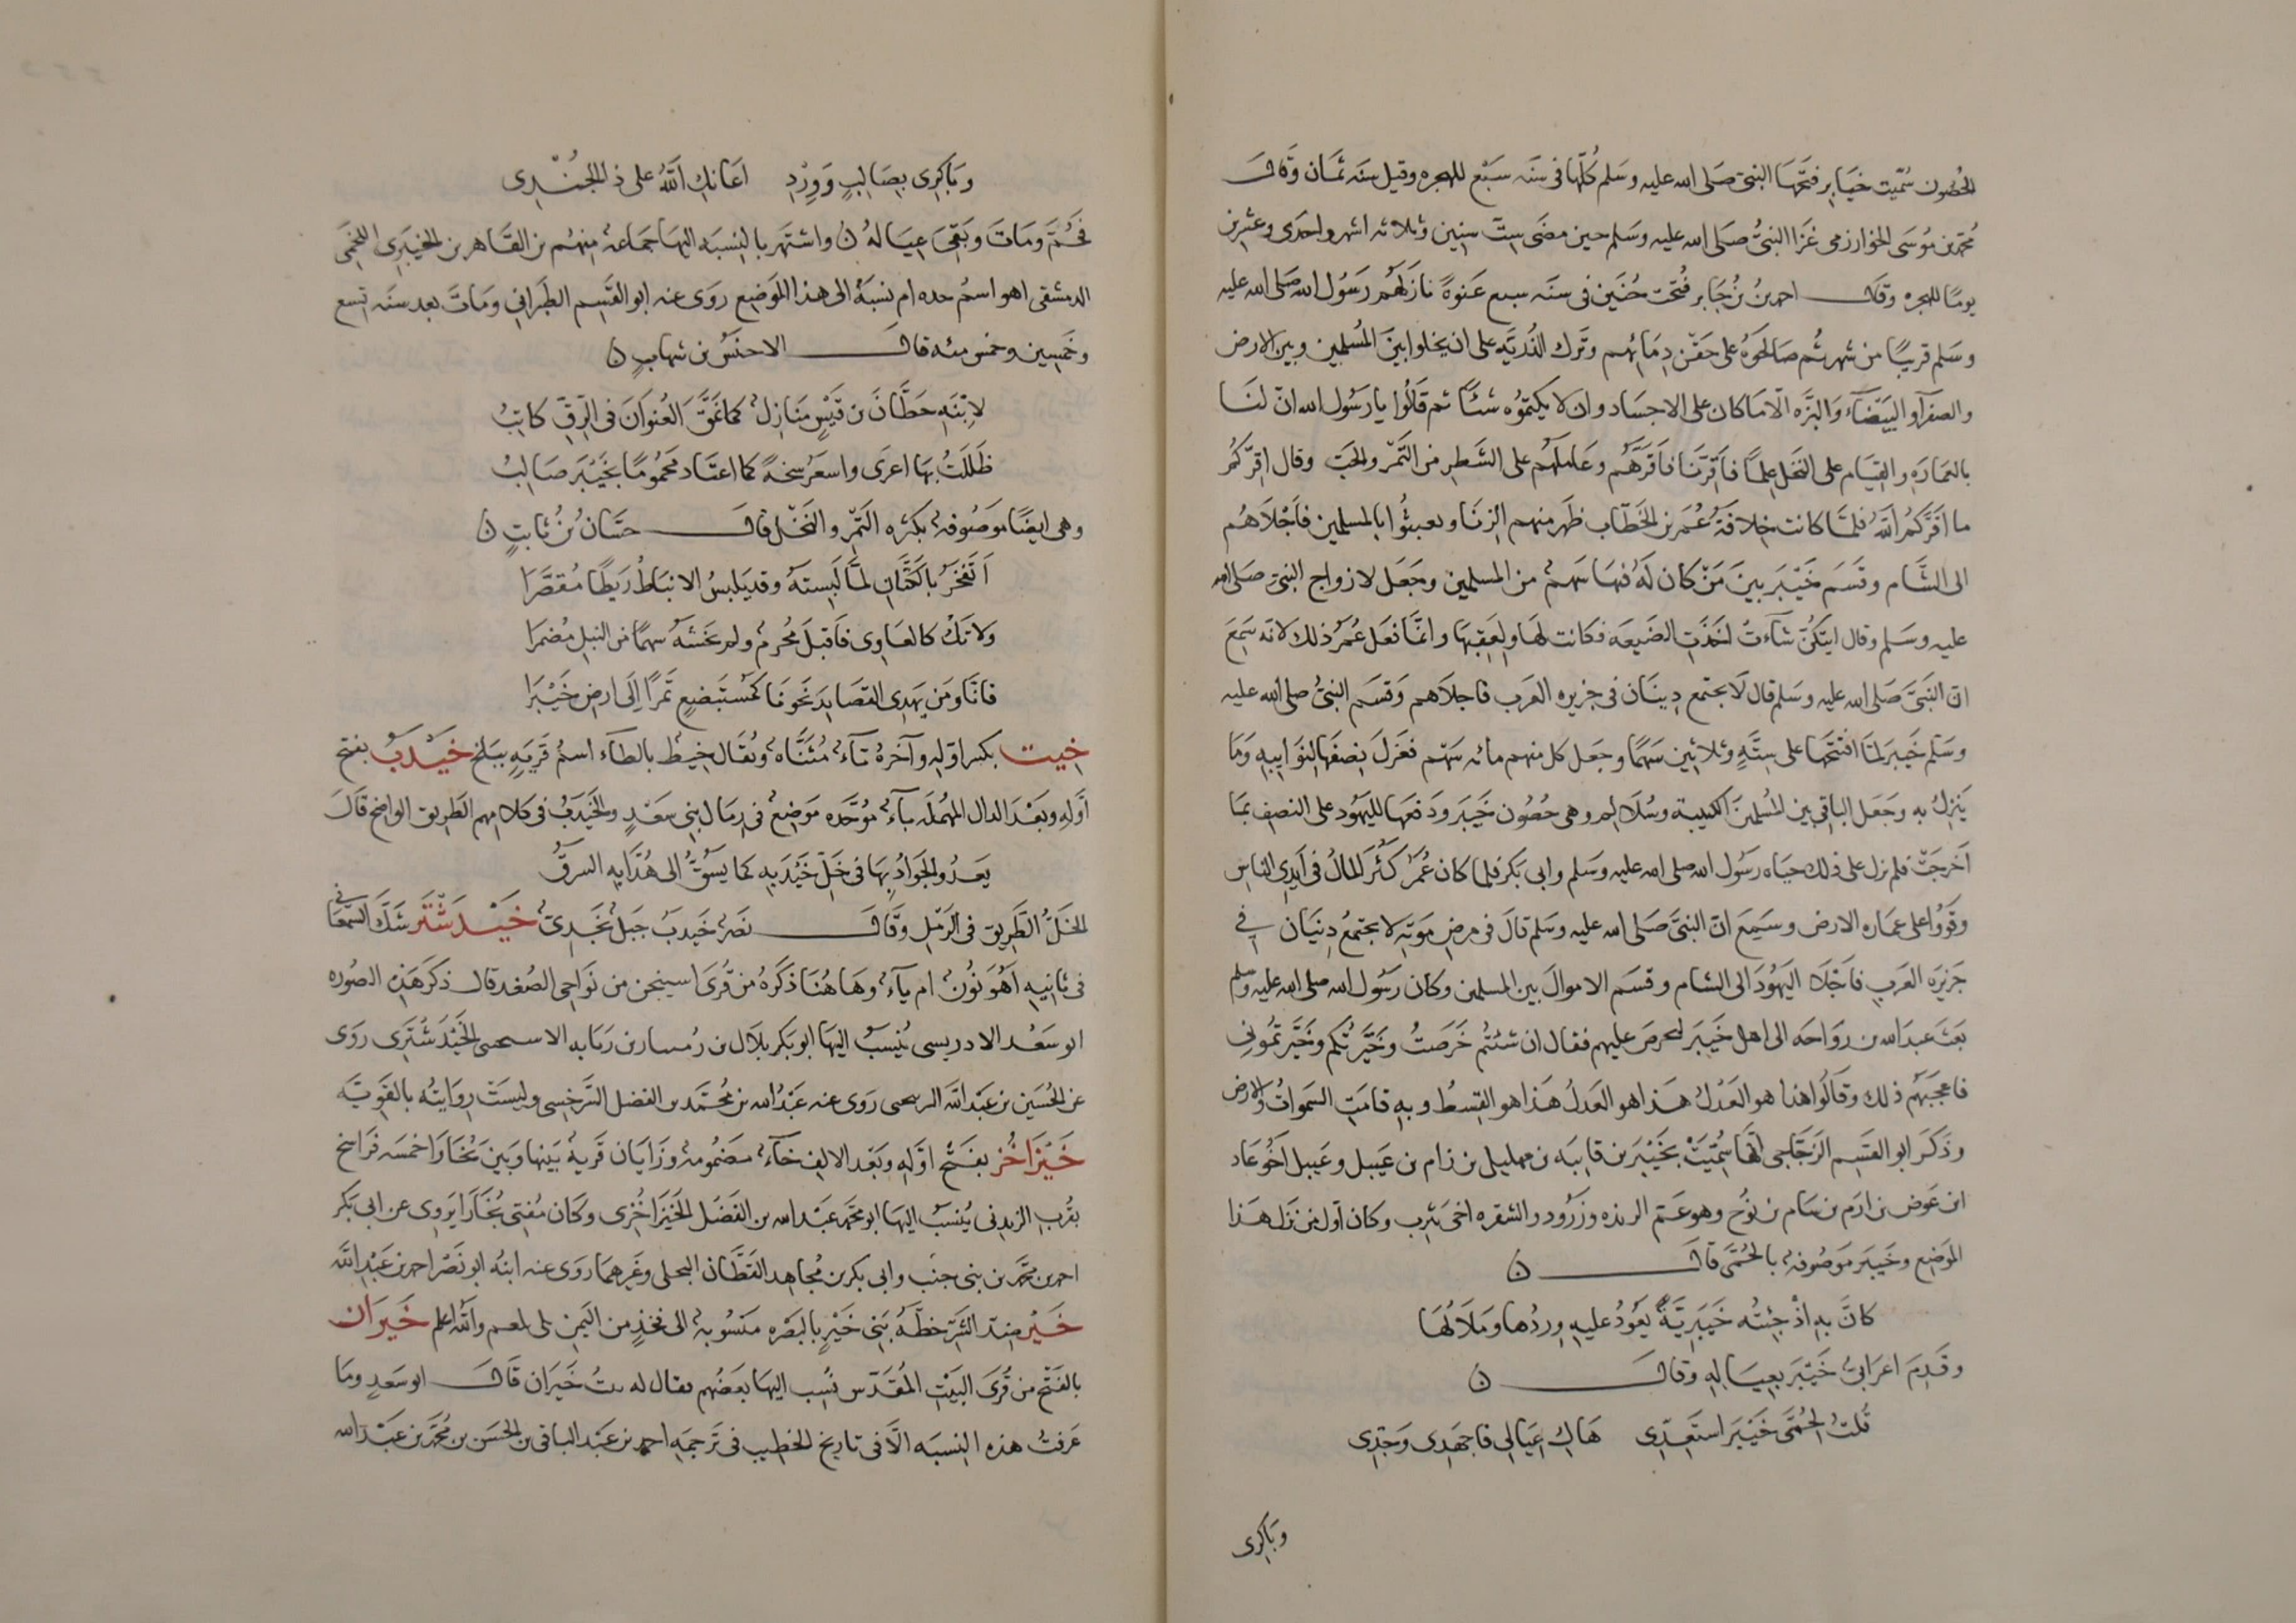 الحُصُون سُمّيت خيَابر فتَحهَا النبيّ صَلى الله عليه وسَلم كُلّها في سَنَه سَبْع للهجره وقيل سَنه ثمَان وَقَال
محمّد بن مُوسَى الخوارزمى غَزَا النبيُّ صَلى الله عليه وسَلم حين مضَى ستّ سِنين وثلاثه اشهر واحدى وعشرين
يومًا للهجره وقال احمد بنُ جَابر فُتحَت حُنَين فى سنَه سبع عَنوةً نازَلَهُم رَسُول الله صَلى الله عليه
وسَلم قريبًا من شهر ثُم صَالحوُه على حَقْن دِمَائِهم وتَرك الذُريّه على ان يخلوا بيَن المُسلمين وبين الارض
والصفرآ والبَيْضَآء والبزَّه الّا مَا كان على الاجسَاد وان لا يكتموُه شئًا ثم قَالُوا يا رَسُول الله انّ لنَا
بالعمَارَه والقيَام على النخَل عِلمًا فاَقِرَّنَا فاَقرَّهُم وعَاملهُم على الشَطر من التَّمر والحَبّ وقال اقِرّكُم
ما اقَرَّكمُ اللهُ فلمّا كانت خِلافةُ عُمَر بن الخَطّاب ظهَر منهم الزِنَا وتعبثُوا بالمسلمين فاَجْلَاهُم
الى الشَّام وقَسَم خَيْبَر بينَ مَنْ كان لَهُ فيهَا سَهمٌ من المسلمين وجَعَل لازواج النبيّ صَلى الله
عليه وسَلم وقال ايتكُنّ شآءَتْ اخَذَت الضَيعَه فكانت لهَا ولِعَقِبهَا وانمّا فعَل عُمَرُ ذلك لانّه سَمِعَ
انّ النَبيَّ صَلى الله عليه وسَلم قال لَا يجتمع دِينَان فى جزيره العَرب فاجلاَهم وَقسَم النبيُّ صلى الله عليه
وسَلم خَيبَر لمّا افتتَحهَا على سِتَّةٍ وثلاثين سَهمًا وجعَل كل منهم مائه سَهْم فعَزلَ نِصفَهَا لِنوَايبِه وَمَا
يَنزِلُ به وجَعَل الباقى بين المُسلمينَ الكتيبَة وسُلَالِم وهى حُصُون خَيبَر ودَفعهَا لليَهُود على النصفِ بمَا
اَخرجَتْ فلم نزل على ذلك حيَاه رسُول الله صلى الله عليه وسَلم وابى بَكر فلما كان عُمَرُ كَثُر المَالُ فى اَيدِى الناسِ
وقَوُوا على عمَاره الارض وسَمِعَ انّ النبيَّ صَلى الله عليه وسَلم قالَ فى مرضِ موَتِهِ لا يجتمعُ دينَان فى
جَزيرَه العَربِ فاَجْلَا اليَهُودَ الى الشام وقسَم الاموالَ بين المسلمين وكان رَسُول الله صلى الله عليه وسلم
بَعثَ عبدَ الله بن روَاحَه الى اهل خَيبَر لتخرصَ عليهم فقال ان شئتُم خَرَصتُ وخَيَّرتُكم وخَيَّرتمُونى
فاعجَبهُم ذلك وقَالُوا هذا هو العَدْلُ هَذا هو العَدلُ هَذا هو القِسطُ وبهِ قامَت السَموَاتُ والارض
وذَكَر ابو القسَم الزَجّاجى انّهَا سُمّيَتْ بخَيْبَر بن قاينَه بن مهليل بن زام بن عَبيل وعَبيل اَخُو عَاد
ابن عَوض بن ارَم بن سَام بن نوُح وهو عَمّ الربذه وزَرُود والشقره اخى يَثرب وكان اَوّل من نزَل هَذا
الموَضِع وخَيبَر مَوصُوفهٌ بالحُمّى قال ن
كانَّ به اِذْ جِئتُه خَيبَرِيَّةً يَعُودُ عليه وِردُها ومَلَالُهَا
وقَدِمَ اعرَابىٌ خَيْبَر بعِيَالِهِ وقال ن
قُلتُ لحُمّى خَيْبَر استَعِدّى هَاك عِيَالى فاجهَدى وَجدّى
وبَاكِرى
وبَاكِرى بصَالِبٍ وَوِرْدِ اعَانكِ اللهُ على ذا الجُنْدِى
فحُمّ ومَاتَ وبَقىَ عِيَالهُ ن واشتهَر بالنسبَه اليهَا جمَاعهٌ منهُم بن القَاهر بن الخيبَرى اللخمَى
الدمشقى اهو اسمُ جده ام نسبةٌ الى هذا الموَضِع روَى عنه ابو القسِم الطبَرانى ومَاتَ بعد سَنَه تسع
وخَمسِين وخمس مئه قال الاخنَسُ بن شهابٍ ن
لابْنَهِ حطَّانَ بن قَيسٍ مَنَازِلٌ كما نَمَّقَ العُنوَانَ فى الرِقّ كاتِبُ
ظَلَلتُ بهَا اعرَى واسعَرُ سخنَةً كما اعتَاد محمُومًا بخَيْبَر صَالبُ
وهى ايضًا موَصُوفهٌ بكثره التّمر والنَخْل قال حسَّانُ بنُ ثابتٍ ن
اَتَفخَرُ بالكَتَّانِ لمّا لَبِستهَ وقد يَلبسُ الانبَاطُ رَيطًا مُقصَّرَا
وَلا تَكُ كالعَاوِى فاَقبَلَ نحرهُ ولم تخشهَ سهمًا من النبلِ مُضمَرا
فانَّا ومَن يَهدِى القصَايدَ نَحوَنَا كمُستَبضِعٍ تَمرًا اِلى ارضِ خَيْبَرَا
خِيت بكسر اوّلِه وآخرهُ تآءٌ مُثنّاه ويُقال خِيطُ بالطآء اسمُ قَريَهٍ ببَلخ خَيْدَبُ بفتح
اَوّلهِ وبَعْدَ الدال المهُملَه بآءٌ موُحَّده موَضِعٌ فى رمَالِ بنِى سَعْدٍ والخَيدَبُ فى كلامِهم الطَريق الوَاضح قَالَ
يَعدُو الجوَادُ بِهَا فى خَلّ خَيْدَبِهِ كما يسَوُقُ الى هُدَّابِهِ السرقُ
الخَلُّ الطَرِيق فى الرَمْل وقَال نَصرٌ خَيدبُ جبَلٌ نَجَدىٌ خَيْدَشْتَر شَكّ السَّمعَانى
فى ثانِيهِ اَهُو نوُنٌ ام يآءٌ وهَا هُنَا ذكَرهُ من قُرَى اسبنجن من نوَاحى الصُغد قال ذكَر هَذِه الصُوره
ابو سَعْد الادريسى يُنسَبُ اليهَا ابو بَكر بلَال بن رُمسار بن رَبَابه الاسحى الخَيْدَشْتَرى روَى
عن الحُسَين بن عَبد اللَه الرسحى روَى عنه عَبْدُ الله بن محُمّد بن الفضل السَّرخسِى وليسَتْ روَايتُه بالقَوِيَّه
خَيْزَاخُز بفَتْح اوّلِه وبَعْد الالِف خآءٌ مضَمُومهٌ وزَايَان قَريهٌ بَينها وبَينَ بُخَارَا خمسَه فرَاسخ
بقُربِ الزندنى يُنسَبُ اليهَا ابو محَمّد عَبْد الله بن الفَضْل الخَيْزاخُزى وكان مُفتى بُخَارَا يَروِى عن ابى بَكر
احمد بن محَمّد بن بنى جنبَ وابى بكر بن مُجاهِد القَطّان البجلى وغَيرهمَا روَى عنه ابنهُ ابو نَصْر احمد بن عَبْد الله
خَيْر ضدّ الشَرّ خطَّهُ بَنى خَيْرٍ بالبصَره منسُوبهٌ الى فخذٍ من اليمَن والله اعلم خَيرَان
بالفتْح من قُرَى البَيْت المُقدَّس نُسِب اليهَا بعَضُهم يقال له بيتُ خَيرَان قال ابو سَعدٍ ومَا
عَرفتُ هذه النِسبَه الّا فى تاريخ الخطيب فى تَرجمَهِ احمد بن عَبْد الباقى بن الحسَن بن محَمّد بن عَبْد الله